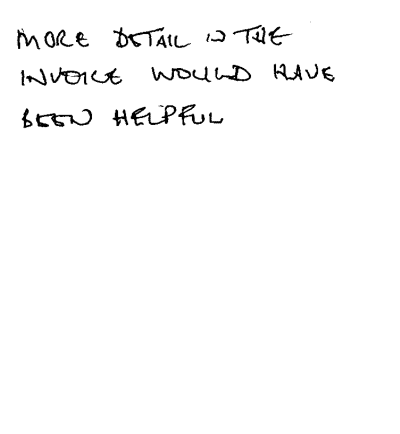 MORE DETAIL IN THE
INVOICE WOULD HAVE
BEEN HELPFUL